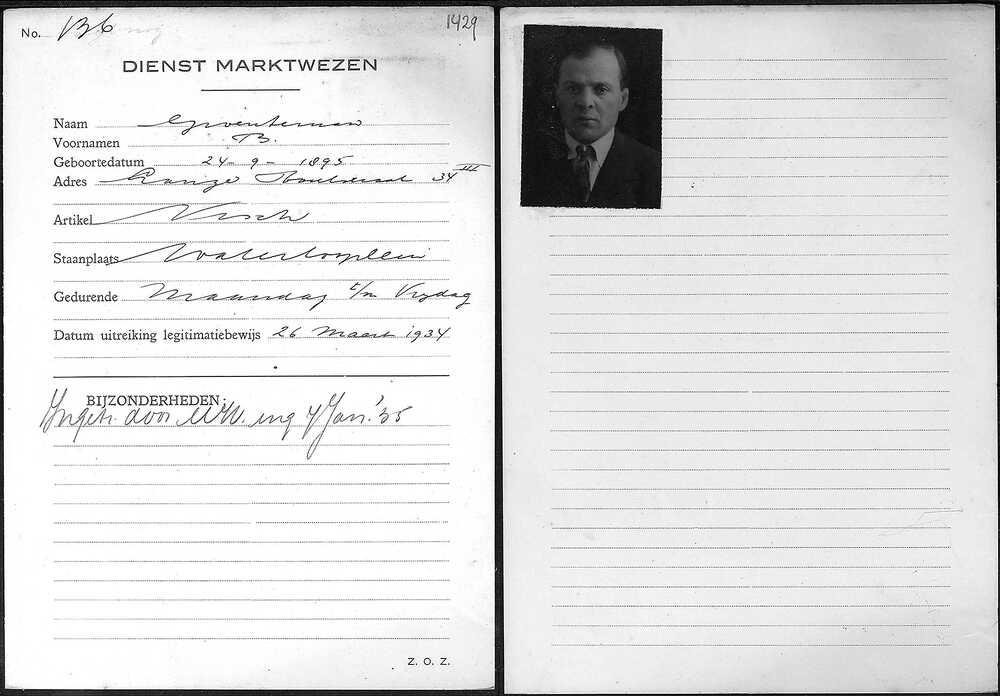 No. B6
1429
DIENST MARKTWEZEN
Naam Groenteman
Voornamen B.
Geboortedatum 24-9-1895
Adres Lange Houtstraat 34 III
Artikel Visch
Staanplaats Waterlooplein
Gedurende Maandag t/m Vrijdag
Datum uitreiking legitimatiebewijs 26 Maart 1934
BIJZONDERHEDEN:
Ingetr. door M.W. ing 7 Jan. '35
Z. O. Z.